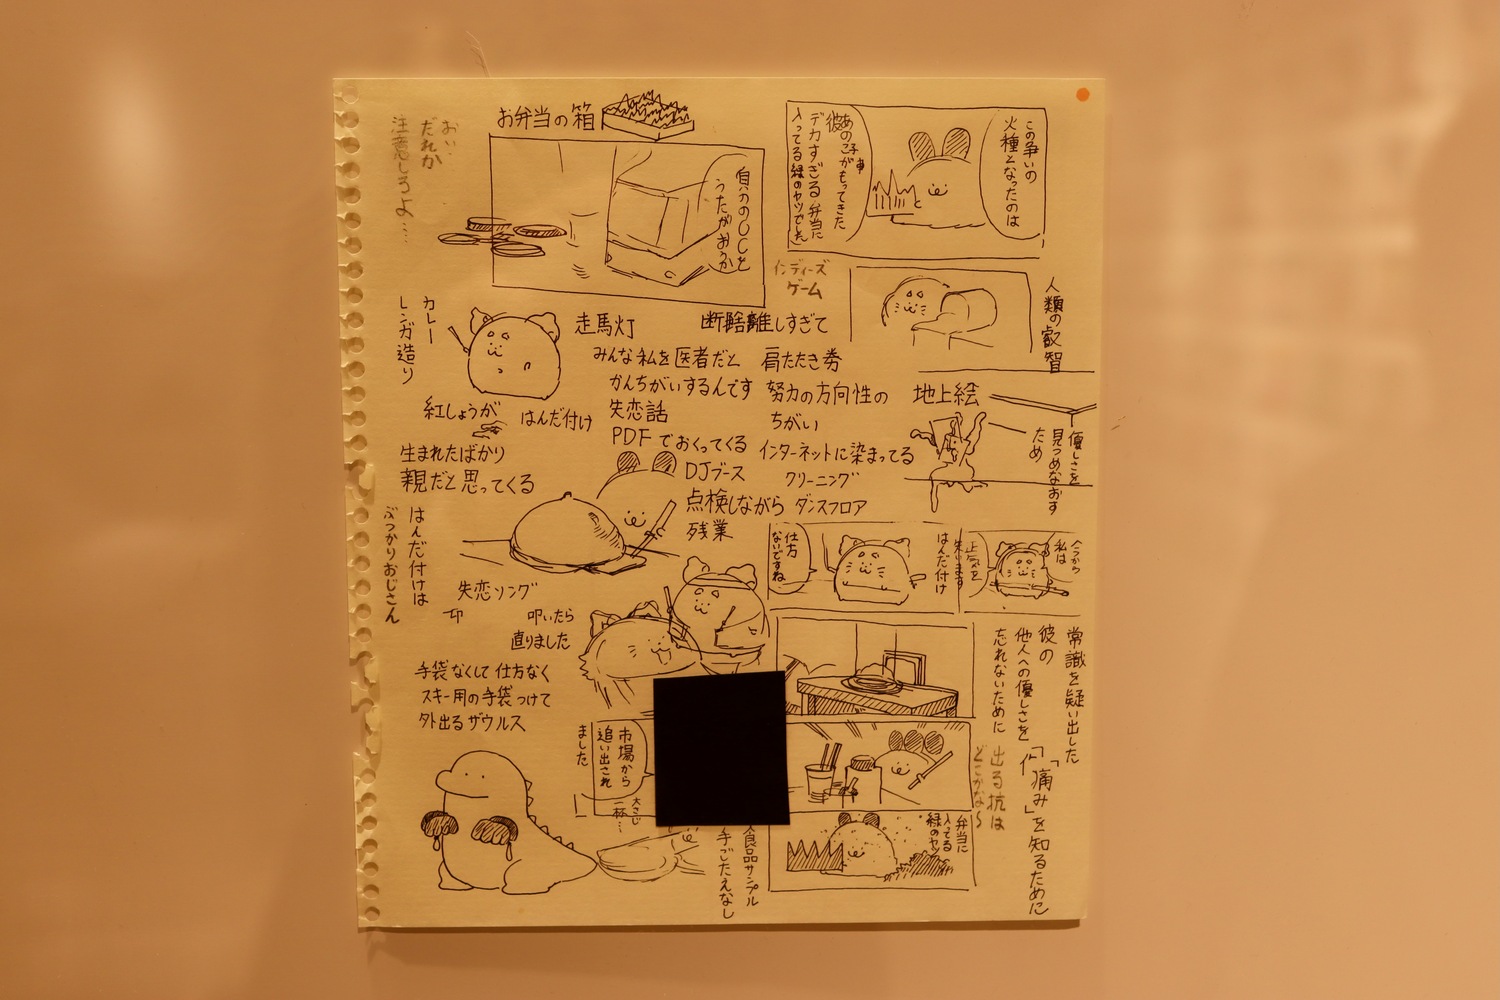 お弁当の箱
おい…
だれか
注意しろよ…
自分のCCを
うたがおうか
この争いの
火種となったのは
あのこがもってきた
デカすぎる弁当に
入ってる緑のヤツでした
インディーズ
ゲーム
人類の叡智
カレー
レンガ造り
走馬灯
断捨離しすぎて
みんな私を医者だと
かんちがいするんです
肩たたき券
努力の方向性の
ちがい
地上絵
優しさを
見つめなおす
ため
紅しょうが
はんだ付け
失恋話
PDFでおくってくる
インターネットに染まってる
クリーニング
生まれたばかり
親だと思ってくる
DJブース
点検しながら
ダンスフロア
残業
はんだ付けは
ぶつかりおじさん
仕方
ないですね
はんだ付け
今から
私は
正気を
失います
失恋ソング
叩いたら
直りました
手袋なくして仕方なく
スキー用の手袋つけて
外出るザウルス
常識を疑い出した
彼の
他人への優しさを
忘れないために
「痛み」を知るために
出る杭は
どこかなら
市場から
追い出され
ました
大さじ
一杯…
弁当に
入ってる
緑のヤツ
食品サンプル
手ごたえなし